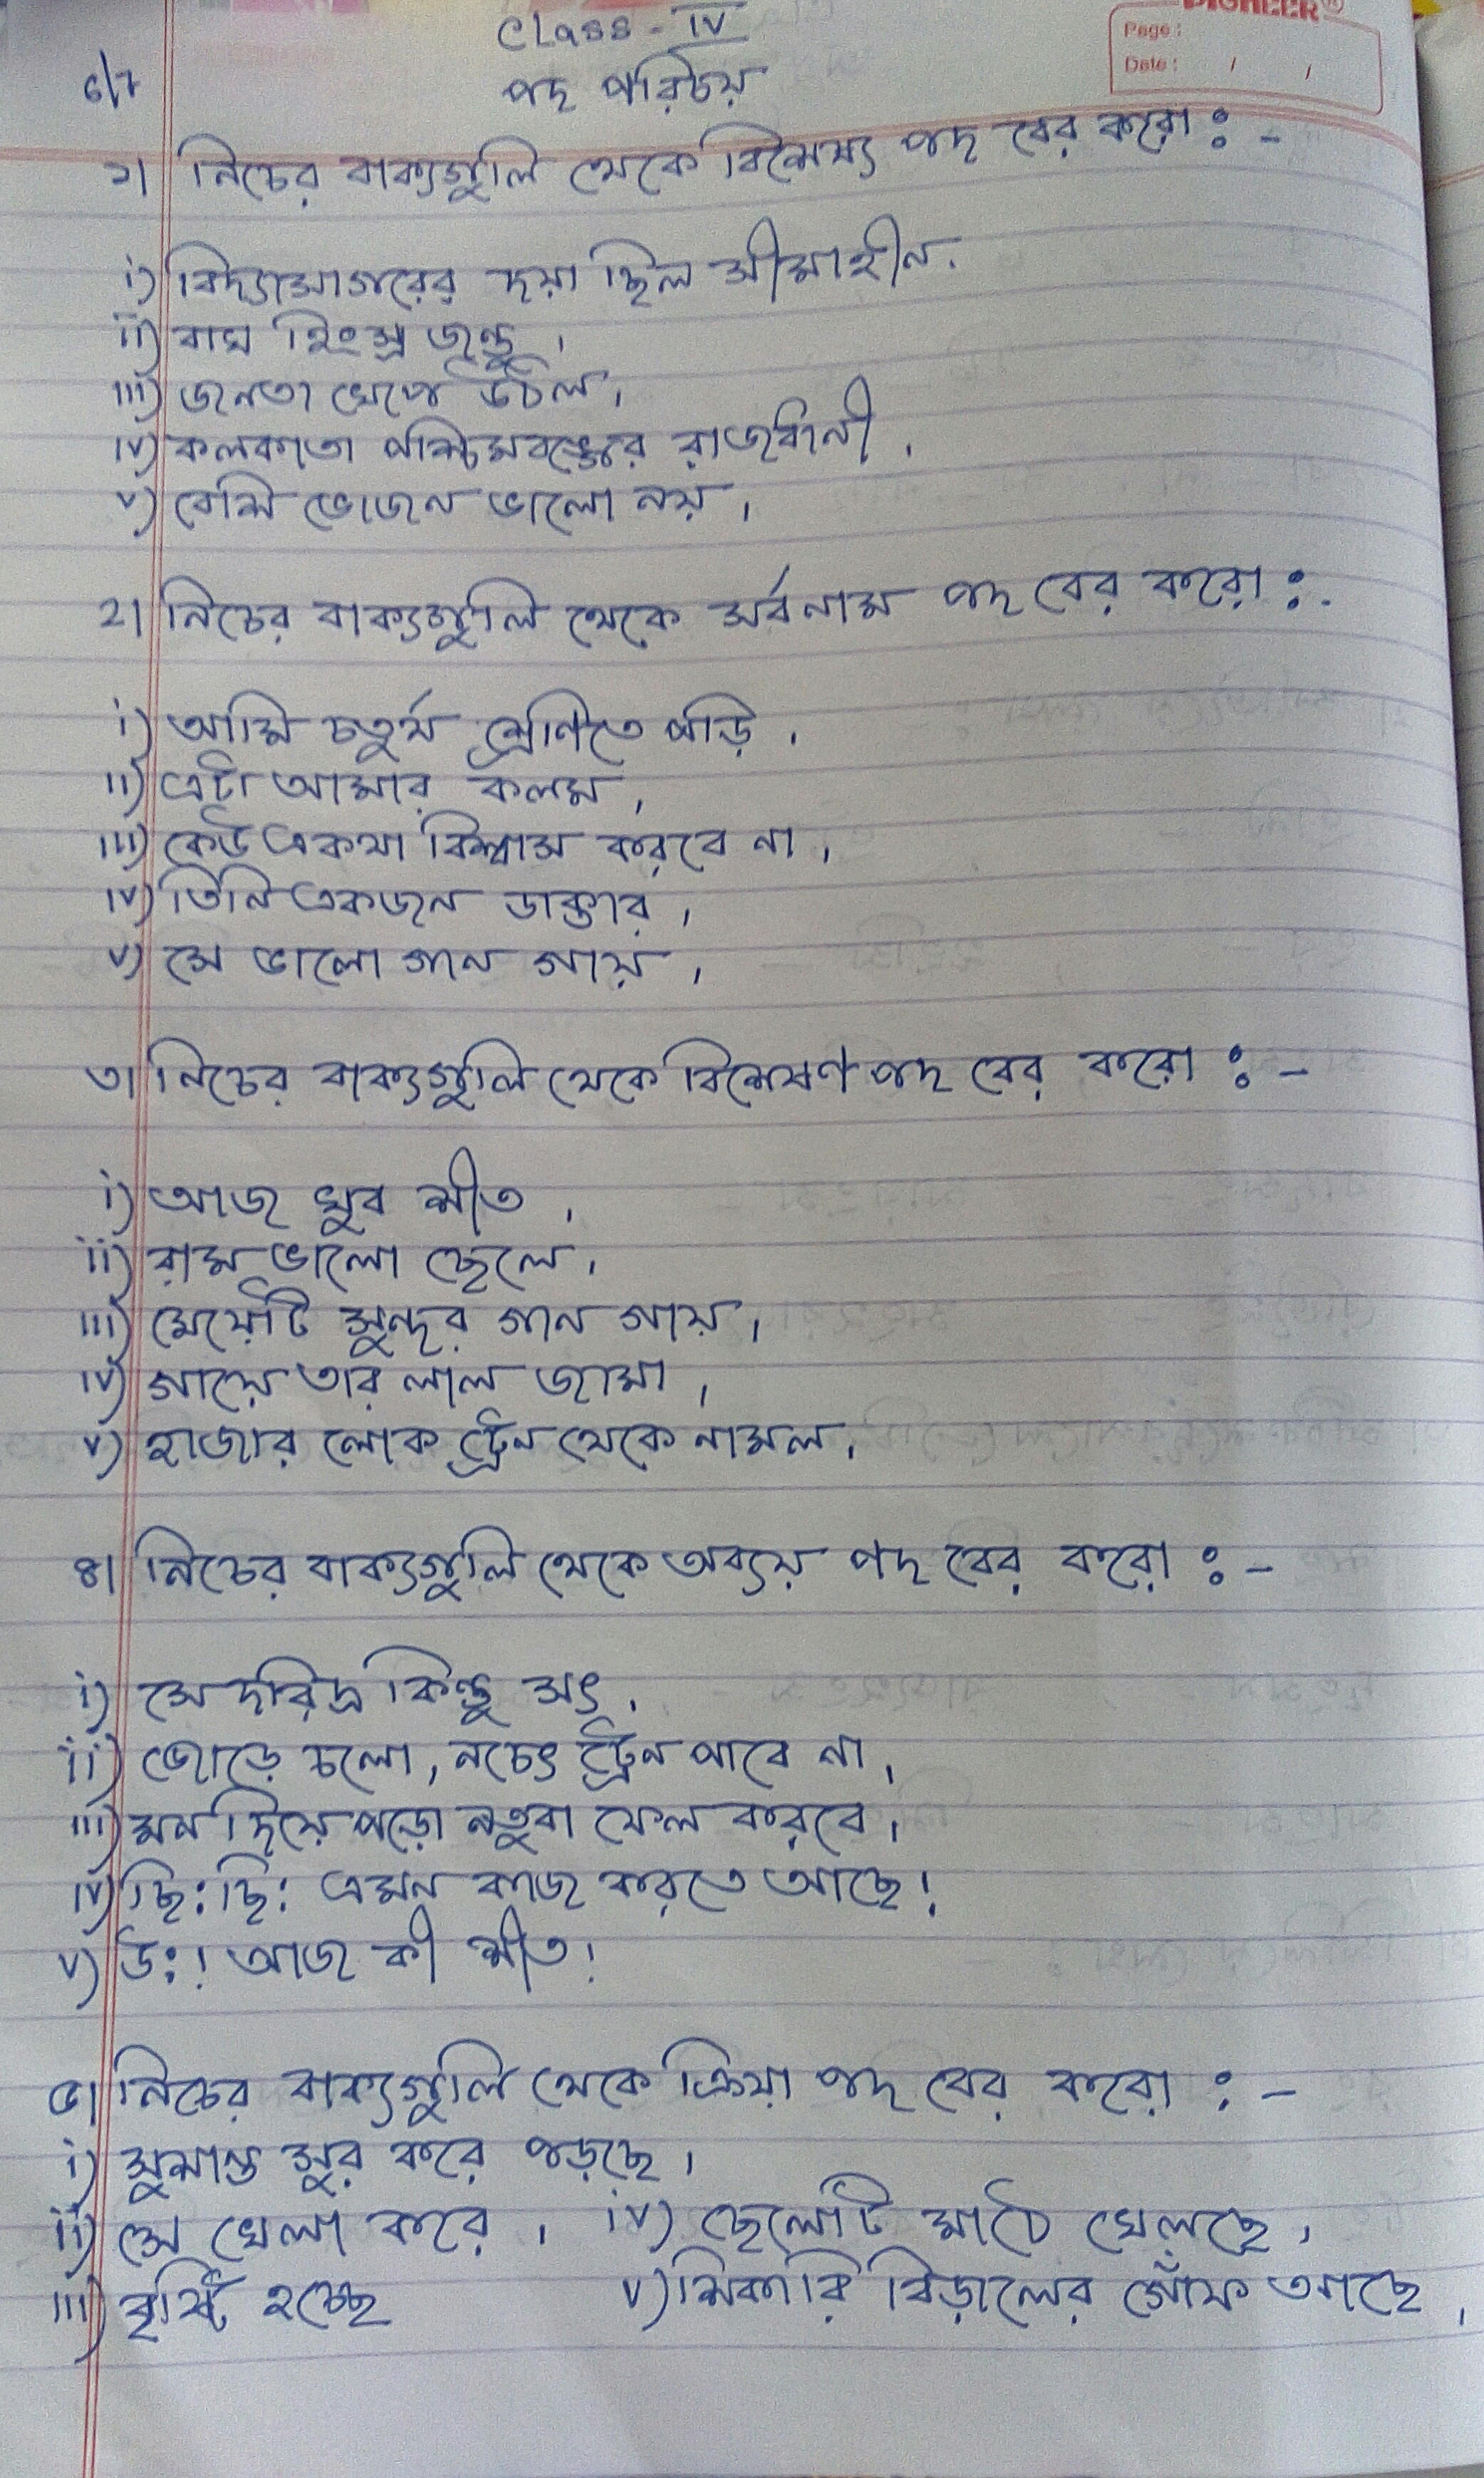 PIONEER
Class - IV
Page :
Date : / /
6/7
পদ পরিচয়
১। নিচের বাক্যগুলি থেকে বিশেষ্য পদ বের করো : -
i) বিদ্যাসাগরের দয়া ছিল সীমাহীন.
ii) বাঘ হিংস্র জন্তু।
iii) জনতা ক্ষেপে উঠল।
iv) কলকাতা পশ্চিমবঙ্গের রাজধানী।
v) বেশি ভোজন ভালো নয়।
২। নিচের বাক্যগুলি থেকে সর্বনাম পদ বের করো : -
i) আমি চতুর্থ শ্রেণিতে পড়ি।
ii) এটা আমার কলম।
iii) কেউ একথা বিশ্বাস করবে না।
iv) তিনি একজন ডাক্তার।
v) সে ভালো গান গায়।
৩। নিচের বাক্যগুলি থেকে বিশেষণ পদ বের করো : -
i) আজ খুব শীত।
ii) রাম ভালো ছেলে।
iii) মেয়েটি সুন্দর গান গায়।
iv) গায়ে তার লাল জামা।
v) হাজার লোক ট্রেন থেকে নামল।
৪। নিচের বাক্যগুলি থেকে অব্যয় পদ বের করো : -
i) সে দরিদ্র কিন্তু সৎ।
ii) জোড়ে চলো, নচেৎ ট্রেন পাবে না।
iii) মন দিয়ে পড়ো নতুবা ফেল করবে।
iv) ছি: ছি: এমন কাজ করতে আছে!
v) উ:! আজ কী শীত!
৫। নিচের বাক্যগুলি থেকে ক্রিয়া পদ বের করো : -
i) সুশান্ত সুর করে পড়ছে।
ii) সে খেলা করে। iv) ছেলেটি মাঠে খেলছে।
iii) বৃষ্টি হচ্ছে v) শিকারি বিড়ালের গোঁফ আছে।